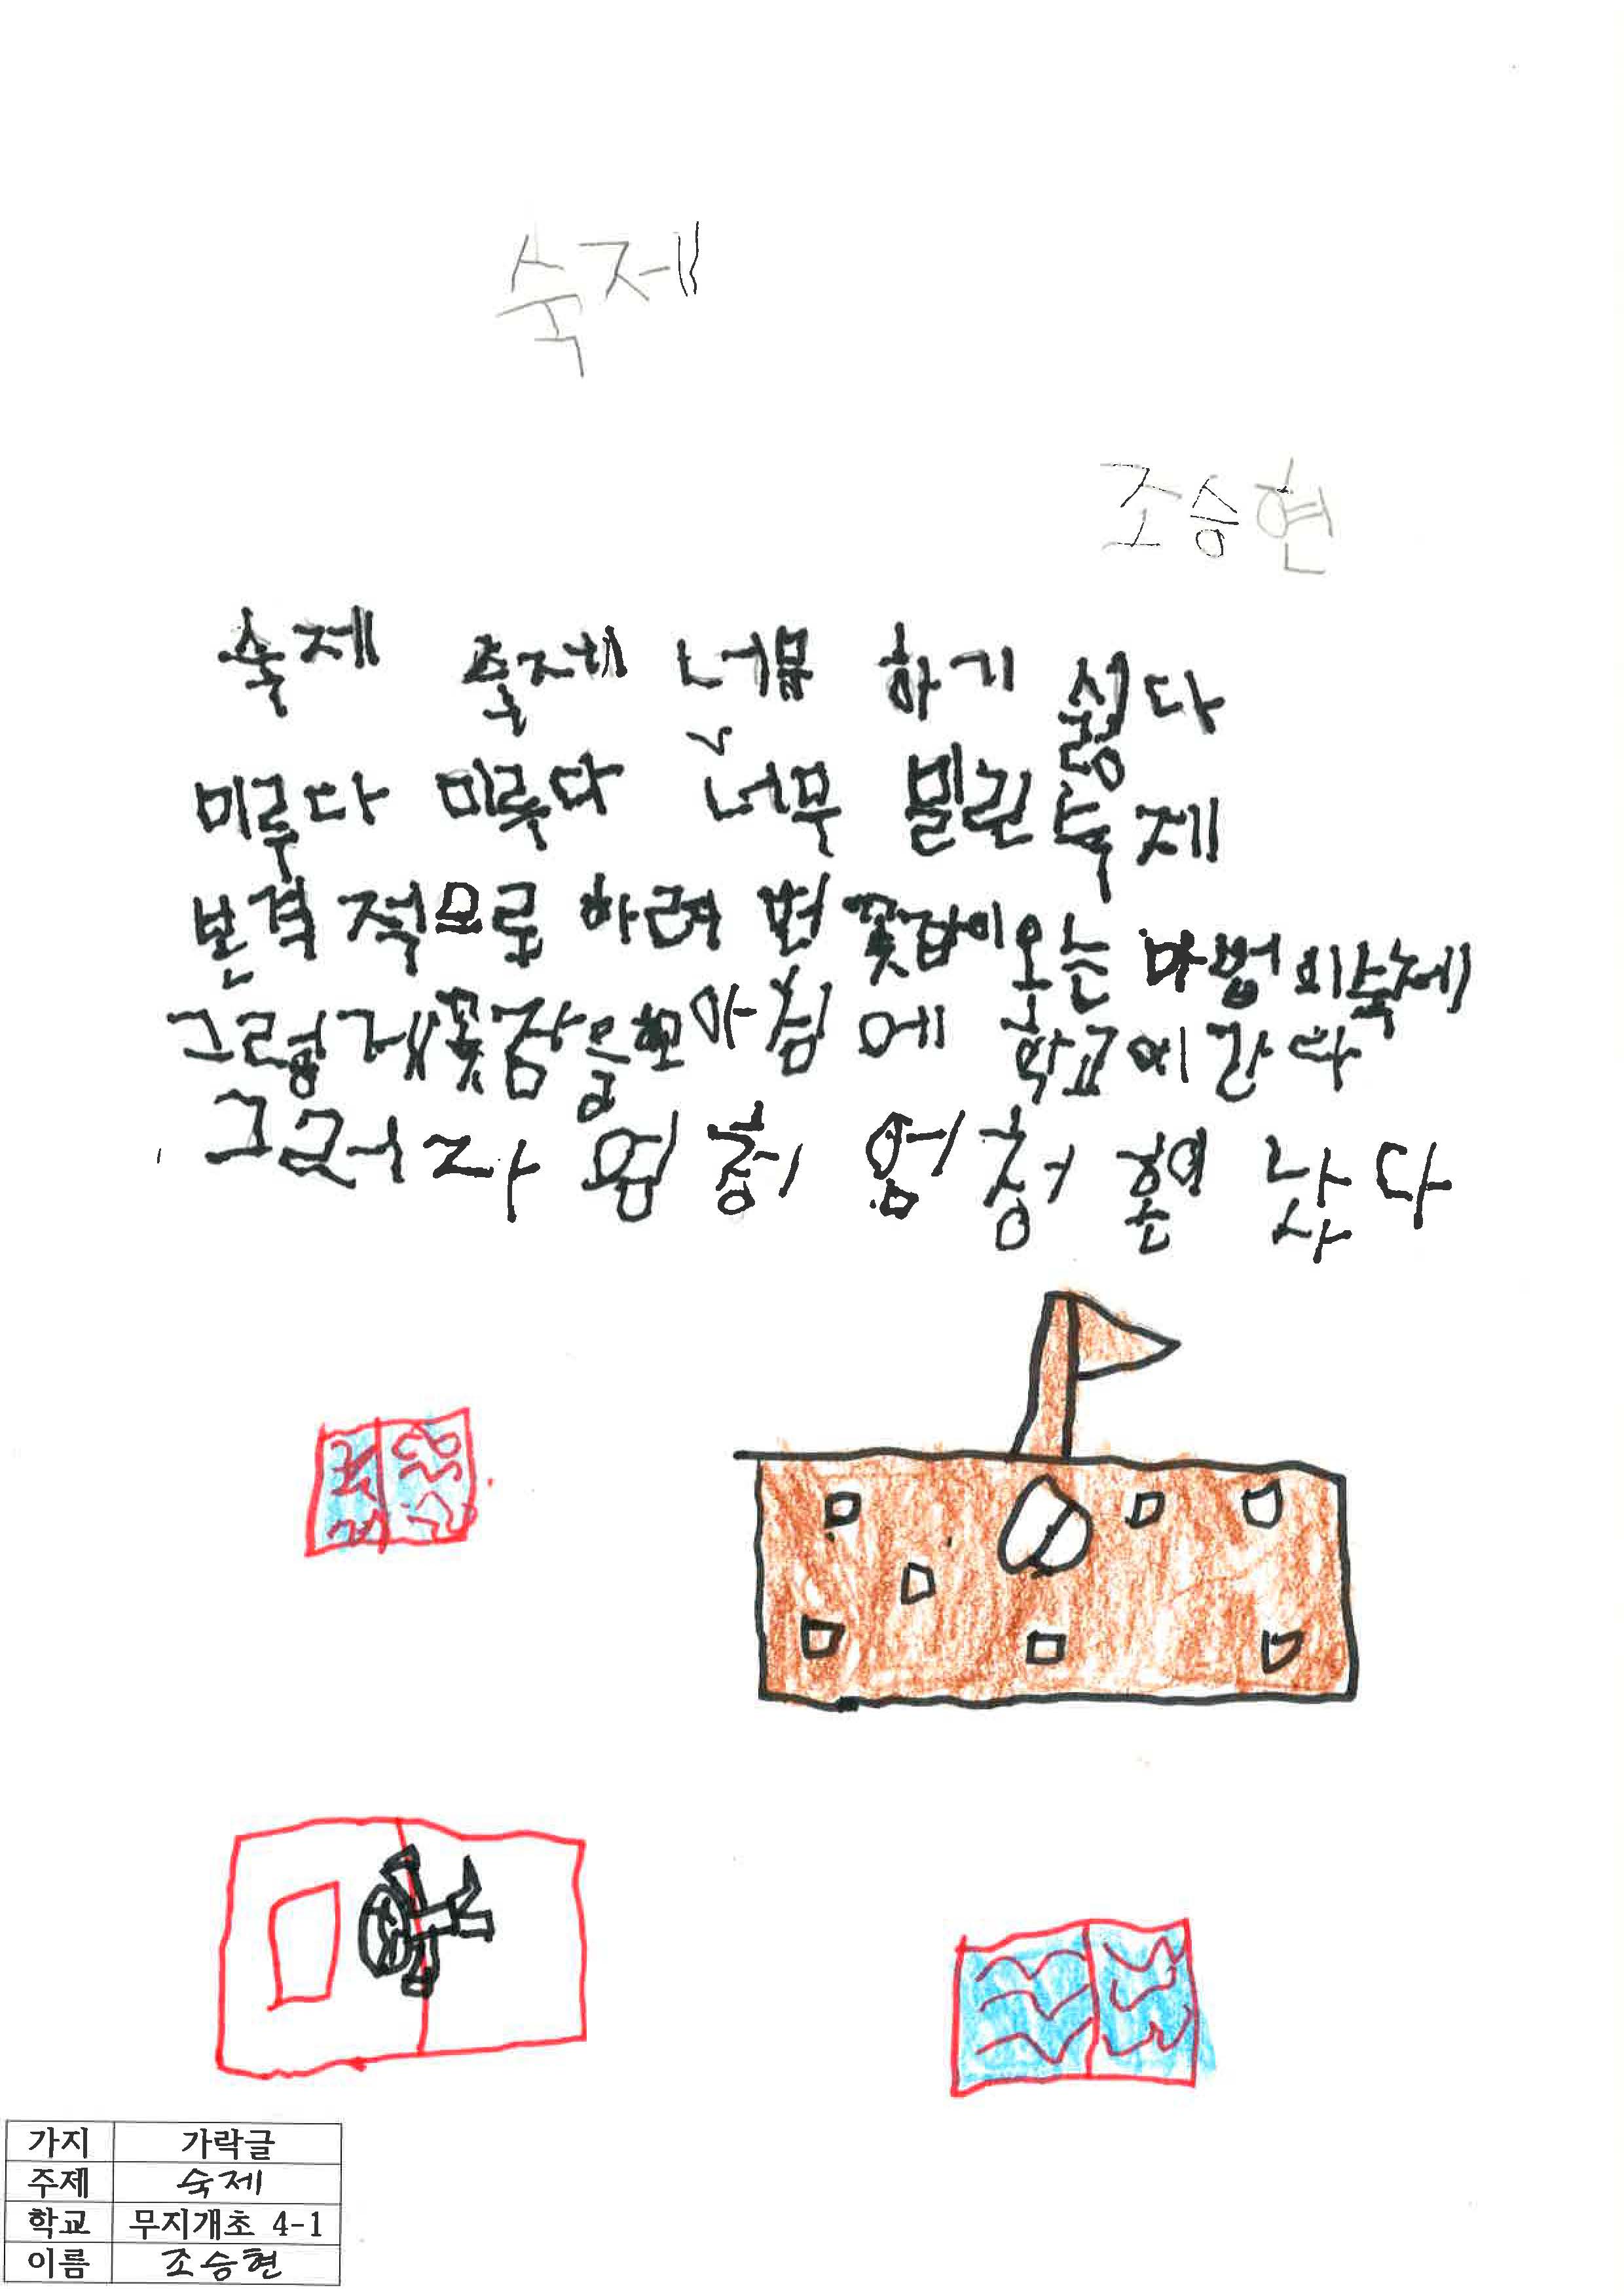 숙제
조승현
숙제 숙제 너무 하기 싫다
미루다 미루다 너무 밀린 숙제
본격적으로 하려 면 꽃잠이 오는 마법의 숙제
그렇게 꽃잠을 한 아침에 학교에 간다
그러자 엄청 엄청 혼 났다
가지 가락글
주제 숙제
학교 무지개초 4-1
이름 조승현